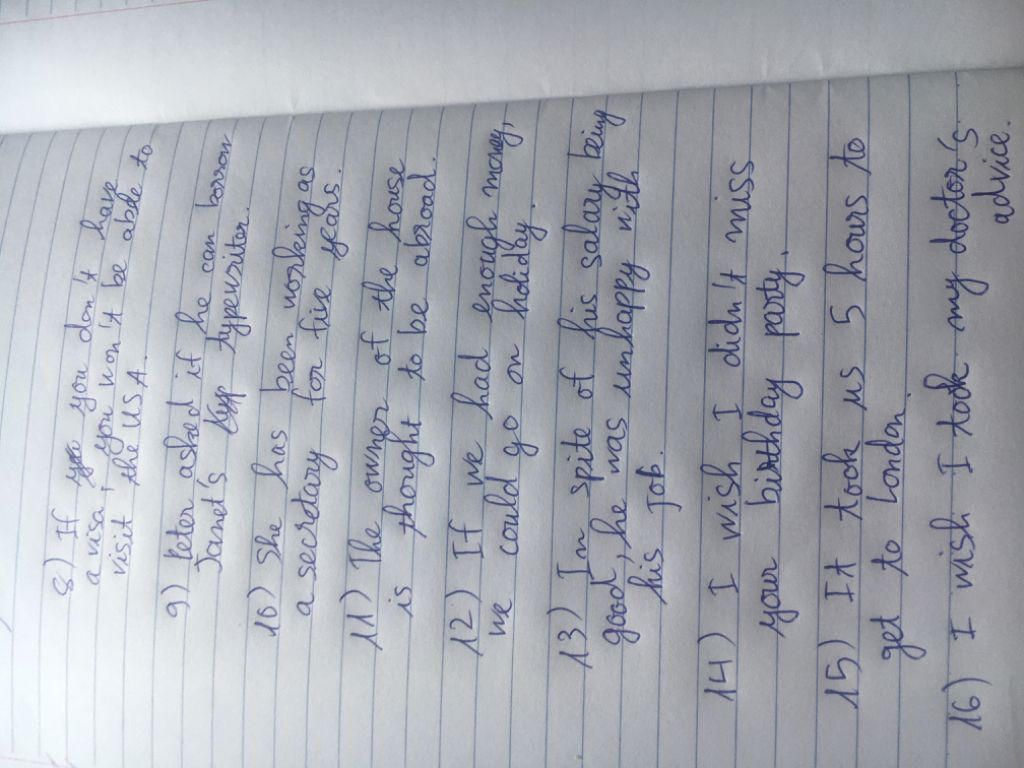 8) If you don't have
a visa, you won't be able to
visit the USA.
9) Peter asked if he can borrow
Janet's typewriter.
10) She has been working as
a secretary for five years.
11) The owner of the house
is thought to be abroad.
12) If we had enough money,
we could go on holiday.
13) In spite of his salary being
good, he was unhappy with
his job.
14) I wish I didn't miss
your birthday party.
15) It took us 5 hours to
get to London.
16) I wish I took my doctor's
advice.